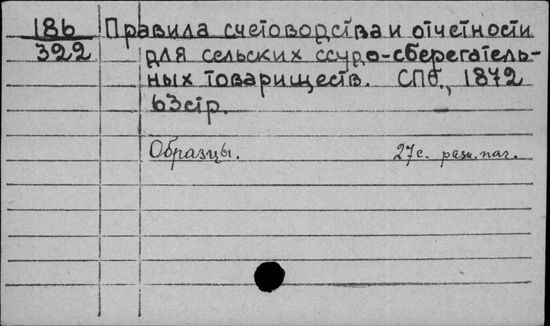 186 Правила счетоводства и отчетности
322 для сельских ссудо-сберегатель-
ных товариществ. СПб., 1872
63стр.
Образцы. 27с. разн. паг.